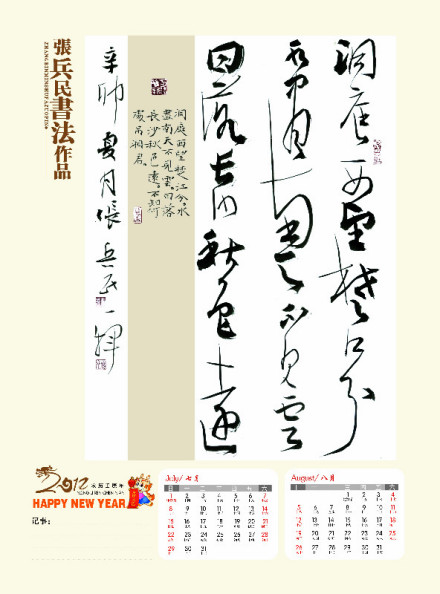 張兵民書法作品
ZHANGBINGMINSHUFAZUOPIN
洞庭西望楚江分
水盡南天不見雲
日落長沙秋色遠
洞庭西望楚江分水
盡南天不見雲日落
長沙秋色遠不知何
處吊湘君
辛卯夏月張兵民一揮
2012
HAPPY NEW YEAR
记事：
July/七月
1 2 3 4 5 6 7
8 9 10 11 12 13 14
15 16 17 18 19 20 21
22 23 24 25 26 27 28
29 30 31
August/八月
1 2 3 4
5 6 7 8 9 10 11
12 13 14 15 16 17 18
19 20 21 22 23 24 25
26 27 28 29 30 31